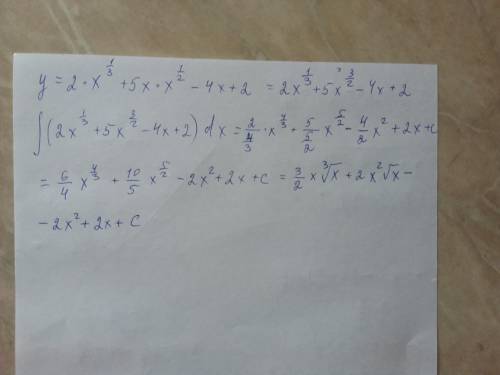 y = 2 · x^{1/3} + 5x · x^{1/2} - 4x + 2 = 2x^{1/3} + 5x^{3/2} - 4x + 2
∫(2x^{1/3} + 5x^{3/2} - 4x + 2) dx = 2/(4/3) · x^{4/3} + 5/(5/2) x^{5/2} - 4/2 x² + 2x + C
= 6/4 x^{4/3} + 10/5 x^{5/2} - 2x² + 2x + C = 3/2 x ∛x + 2x² √x -
- 2x² + 2x + C